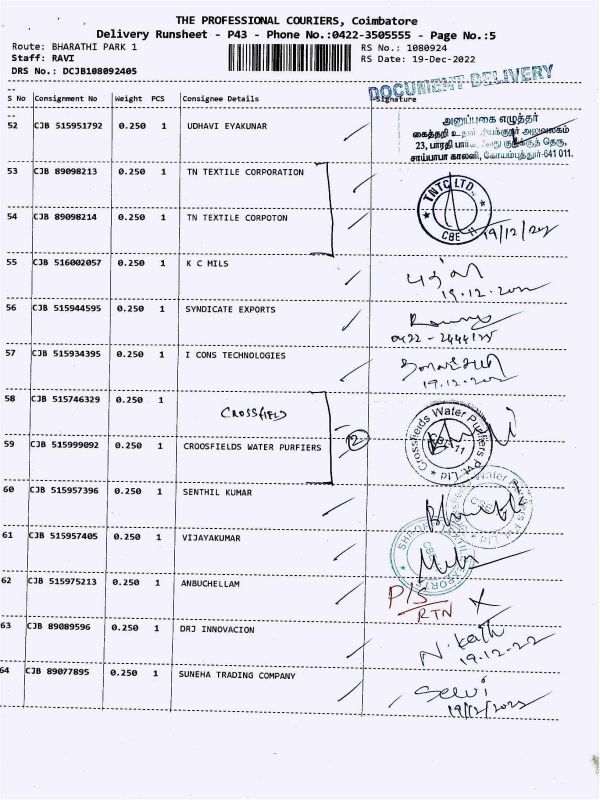 THE PROFESSIONAL COURIERS, Coimbatore
Delivery Runsheet - P43 - Phone No.:0422-3505555 - Page No.:5
Route: BHARATHI PARK 1 RS No.: 1080924
Staff: RAVI RS Date: 19-Dec-2022
DRS No.: DCJB108092405
DOCUMENT DELIVERY
S No Consignment No Weight PCS Consignee Details Signature
52 CJB 515951792 0.250 1 UDHAVI EYAKUNAR
அனுப்புகை எழுத்தர்
கைத்தறி உதவி அலுவலகம்
23, பாரதி தெரு,
சாய்பாபா காலனி, கோயம்புத்தூர்-641 011.
53 CJB 89098213 0.250 1 TN TEXTILE CORPORATION
TNTC LTD.
CBE 11
54 CJB 89098214 0.250 1 TN TEXTILE CORPOTON
19/12/22
55 CJB 516002057 0.250 1 K C MILS
19.12.2022
56 CJB 515944595 0.250 1 SYNDICATE EXPORTS
0422-2444135
57 CJB 515934395 0.250 1 I CONS TECHNOLOGIES
19.12.2022
58 CJB 515746329 0.250 1
CROSSFIELD
12
Crossfields Water Purifiers Pvt. Ltd
59 CJB 515999092 0.250 1 CROOSFIELDS WATER PURFIERS
60 CJB 515957396 0.250 1 SENTHIL KUMAR
Water
61 CJB 515957405 0.250 1 VIJAYAKUMAR
CBE
62 CJB 515975213 0.250 1 ANBUCHELLAM
P/S
RTN
63 CJB 89089596 0.250 1 DRJ INNOVACION
19.12.22
64 CJB 89077895 0.250 1 SUNEHA TRADING COMPANY
Selvi
19/12/2022